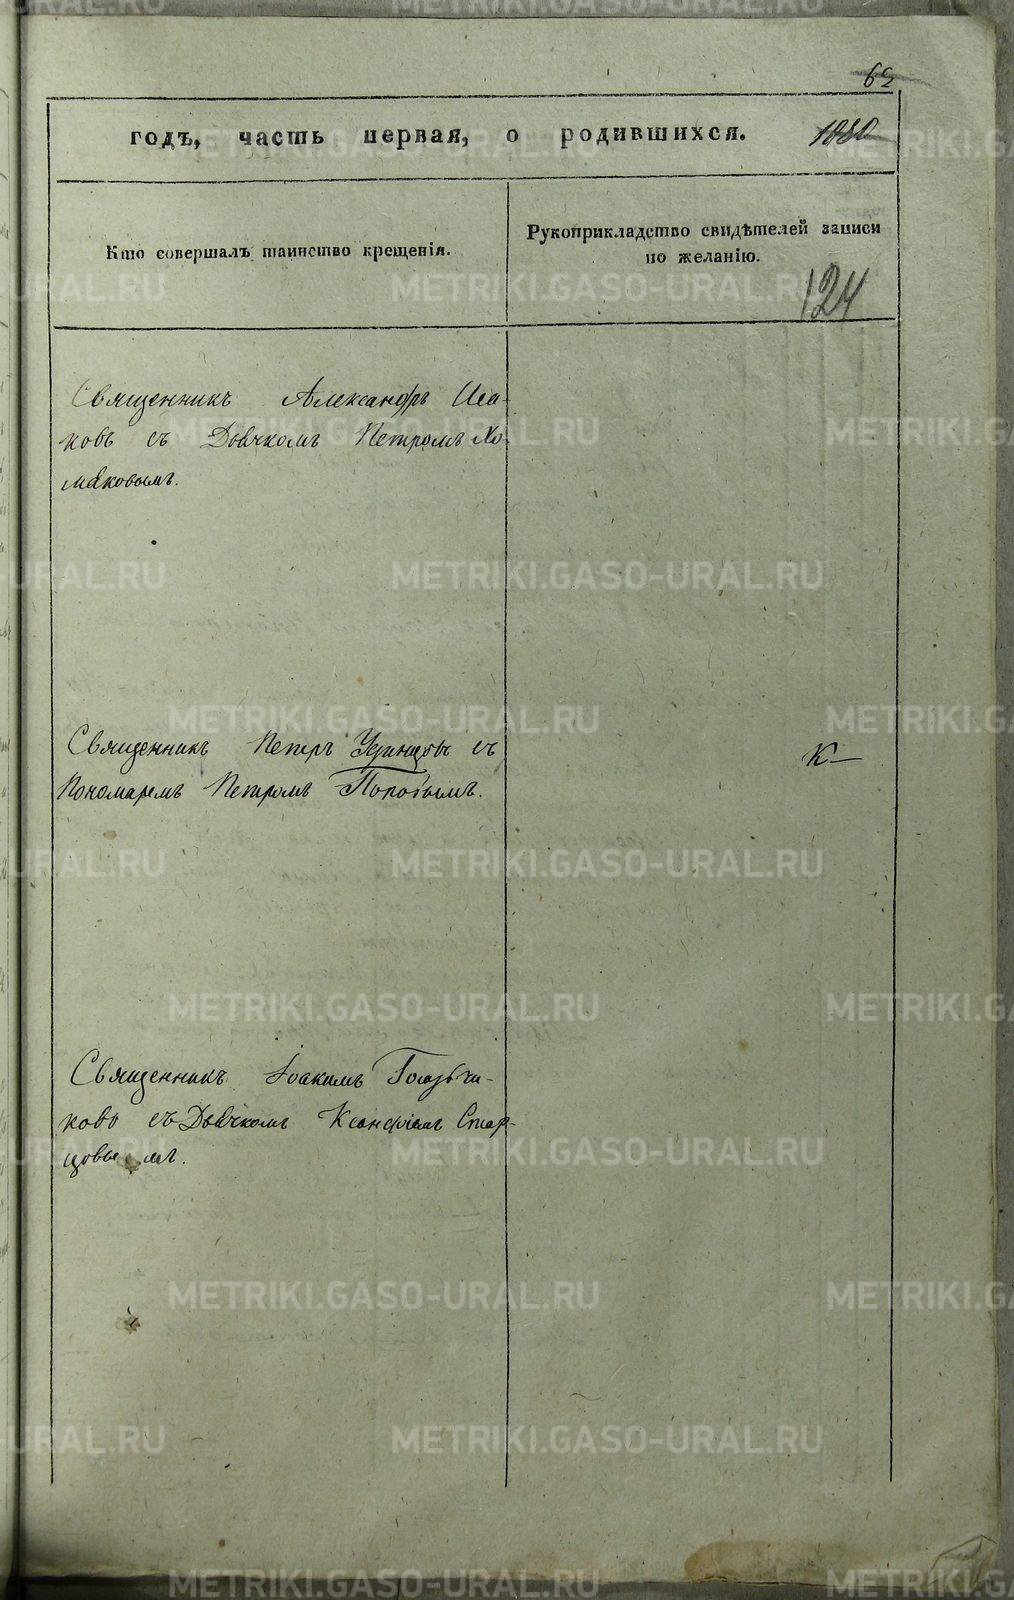 62
годъ, часть первая, о родившихся. 1080
Кто совершалъ таинство крещенія.
Рукоприкладство свидѣтелей записи
по желанію.
124
Священникъ Александръ Иса-
ковъ съ Дьячкомъ Петромъ Хо-
мяковымъ.
Священникъ Петръ съ
Пономаремъ Петромъ Поповымъ.
К
Священникъ Іоакимъ
ковъ съ Дьячкомъ Стар-
цовымъ.
METRIKI.GASO-URAL.RU